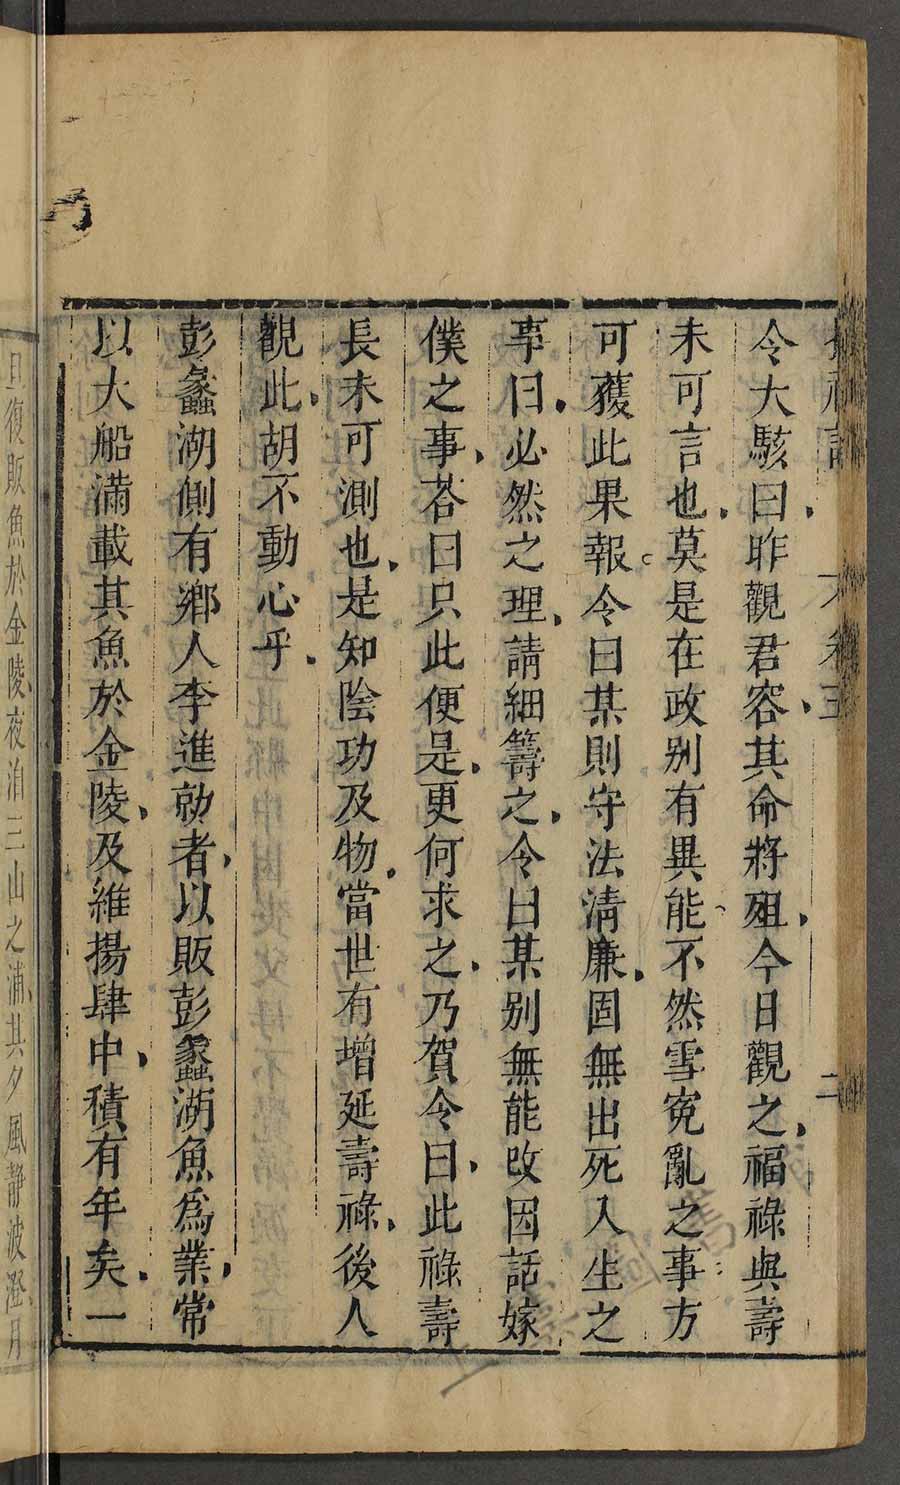 令大駭曰昨觀君容其命將殂今日觀之福祿與壽
未可言也莫是在政别有異能不然雪寃亂之事方
可獲此果報令曰某則守法清廉固無出死入生之
事曰必然之理請細籌之令曰某别無能改因話嫁
僕之事荅曰只此便是更何求之乃賀令曰此祿壽
長未可測也是知陰功及物當世有增延壽祿後人
觀此胡不動心乎
彭蠡湖側有鄉人李進勍者以販彭蠡湖魚爲業常
以大船滿載其魚於金陵及維揚肆中積有年矣一
旦復販魚於金陵夜泊三山之浦其夕風靜波澄月